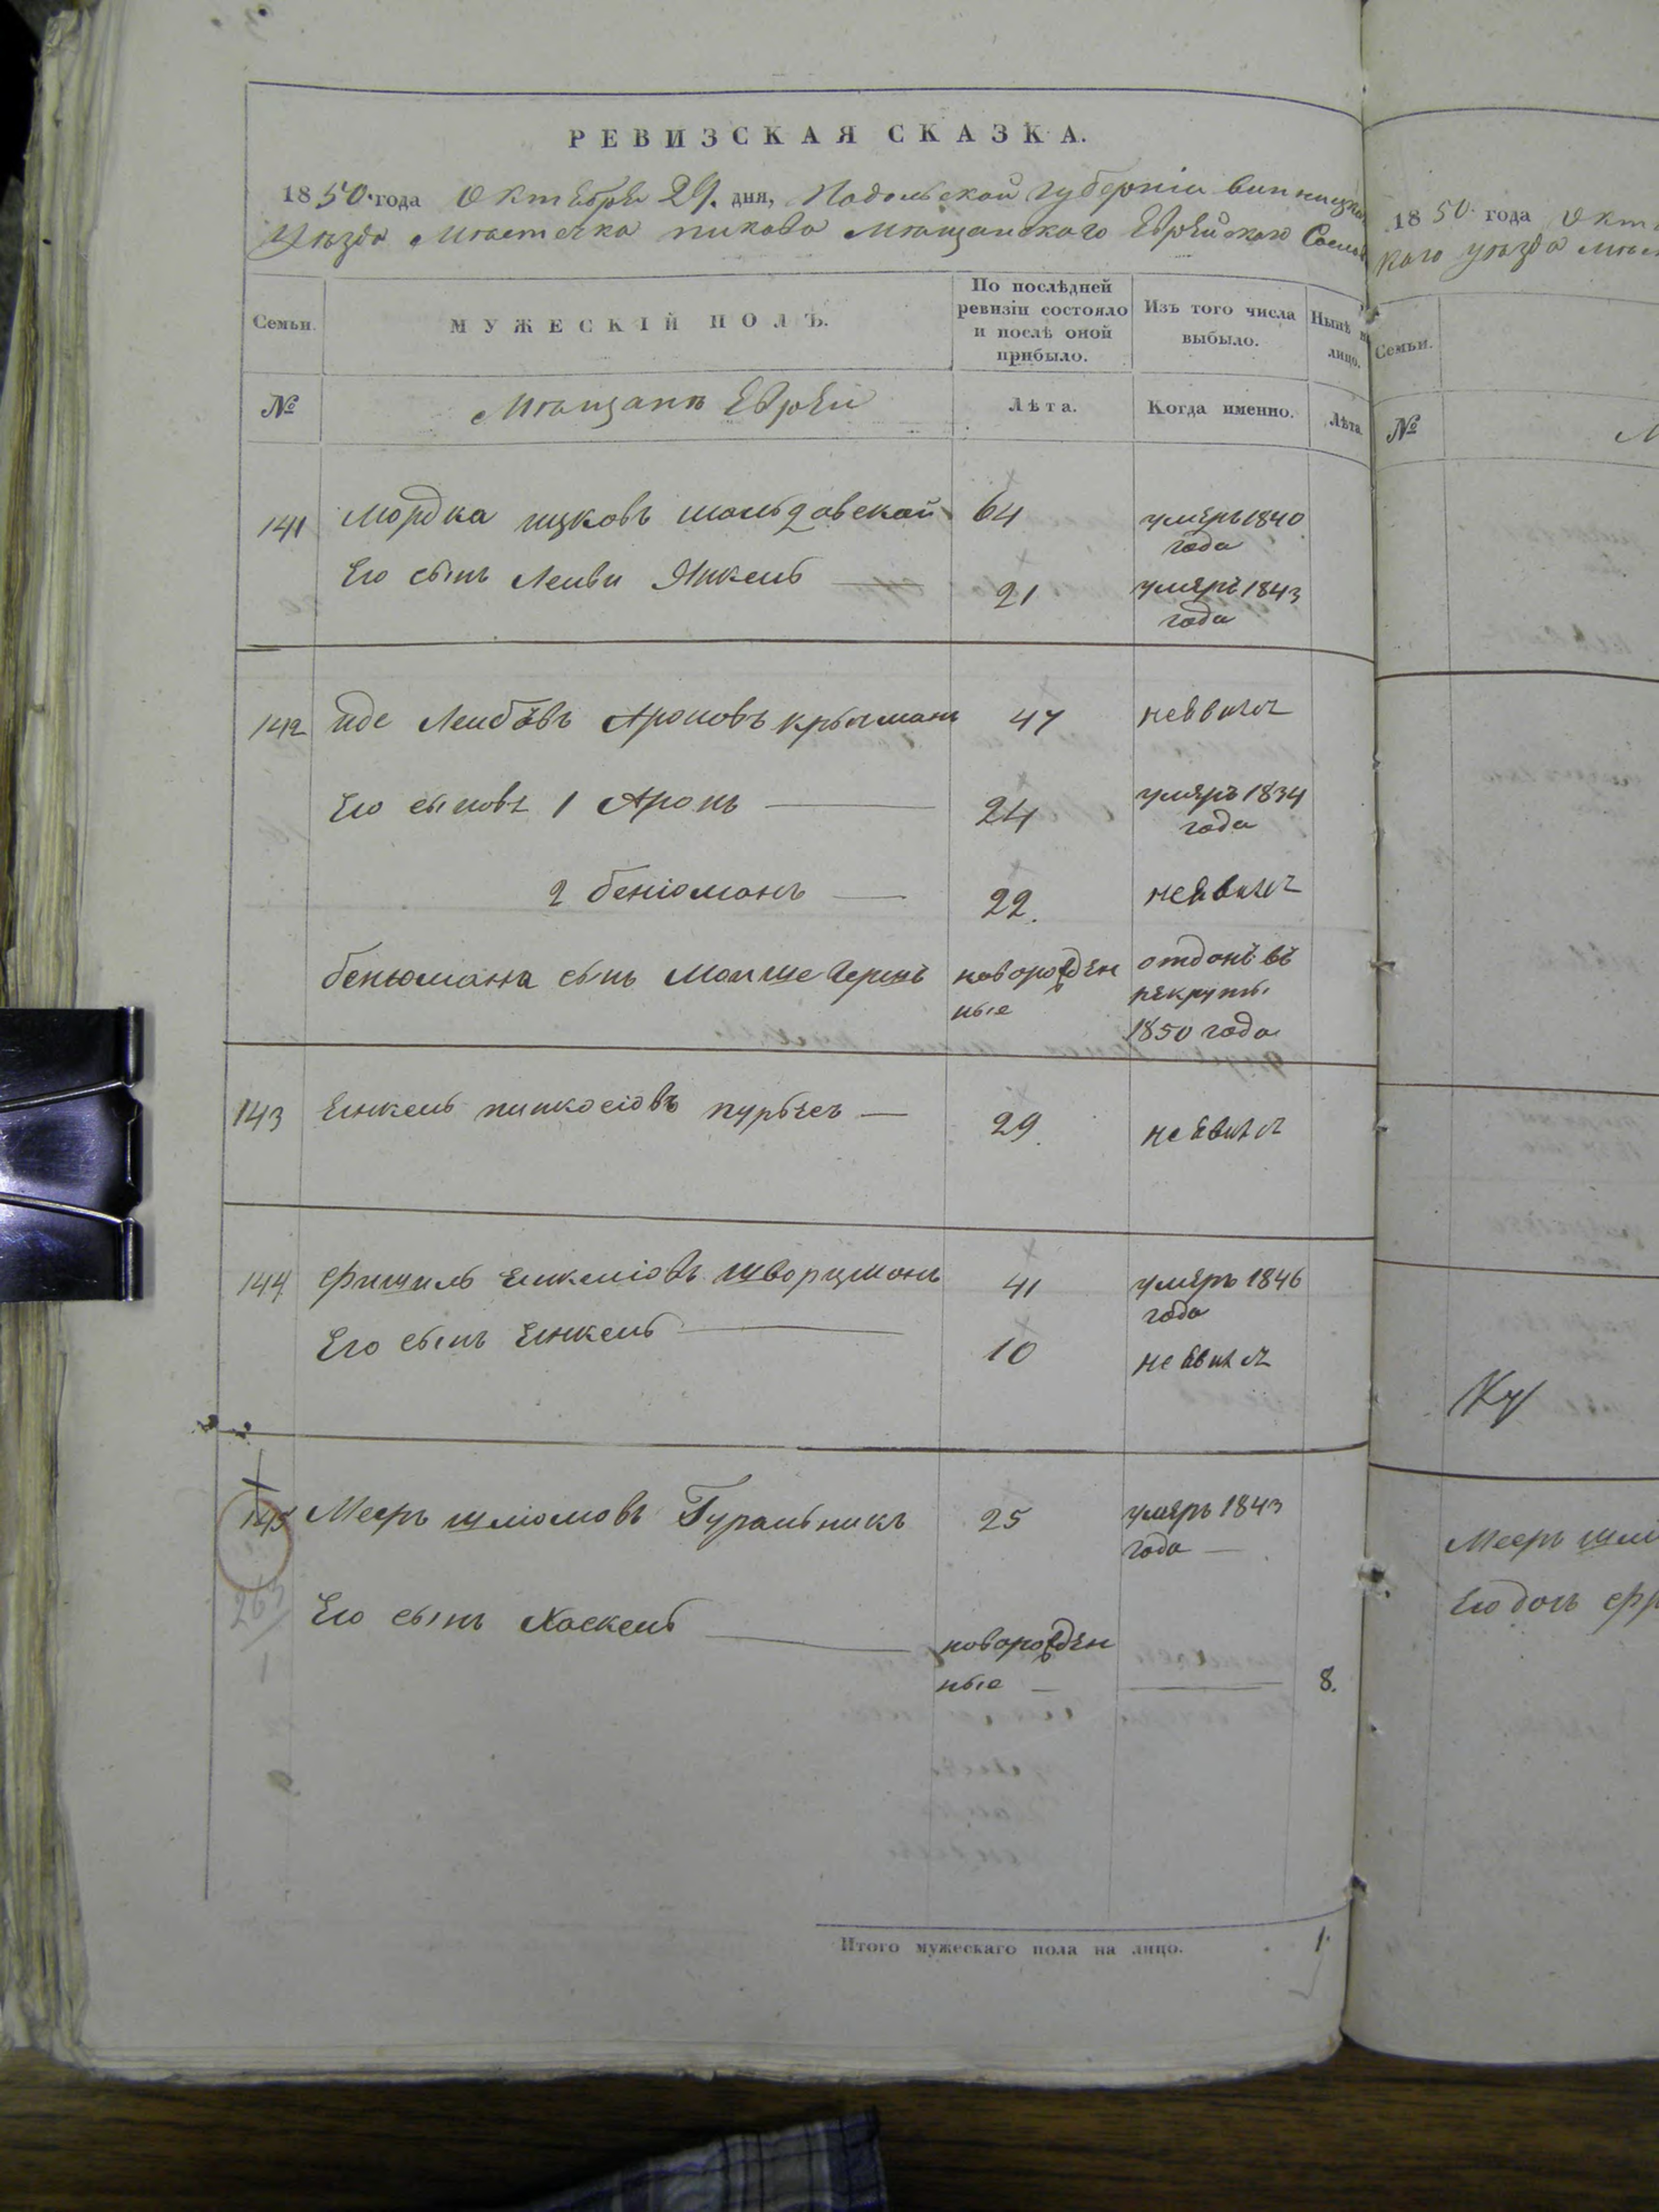 РЕВИЗСКАЯ СКАЗКА.
1850 года Октября 29. дня, Подольской губерніи винницкаго
Уѣзда Мѣстечка пикова мѣщанского Еврейского
Семьи.
МУЖЕСКІЙ ПОЛЪ.
По послѣдней ревизіи состояло и послѣ оной прибыло.
Изъ того числа выбыло.
Нынѣ на лицо.
№
Мѣщанѣ Евреи
Лѣта.
Когда именно.
Лѣта
141 Мордка ицковъ 64 умеръ 1840 года
Его сынъ Янкель 21 умеръ 1843 года
142 Иде Лейбовъ Ароновъ 47 неявился
Его сыновя 1 Аронъ 24 умеръ 1834 года
2 беніоманъ 22. неявился
бенюмана сынъ Моише Гершъ новорожденные отданъ въ рекруты 1850 года
143 Еинкель 29. неявился
144 Фишиль Еинкеліовъ шворцманъ 41 умеръ 1846 года
Его сынъ Еинкель 10 неявился
145 Мееръ шліомовъ Гуральникъ 25 умеръ 1843 года
263
1
Его сынъ Хаскель новорожденные 8.
Итого мужескаго пола на лицо. 1.
1850 года Окт
каго уѣзда мѣс
Семьи.
№
М
Мееръ шлі
Его дочь